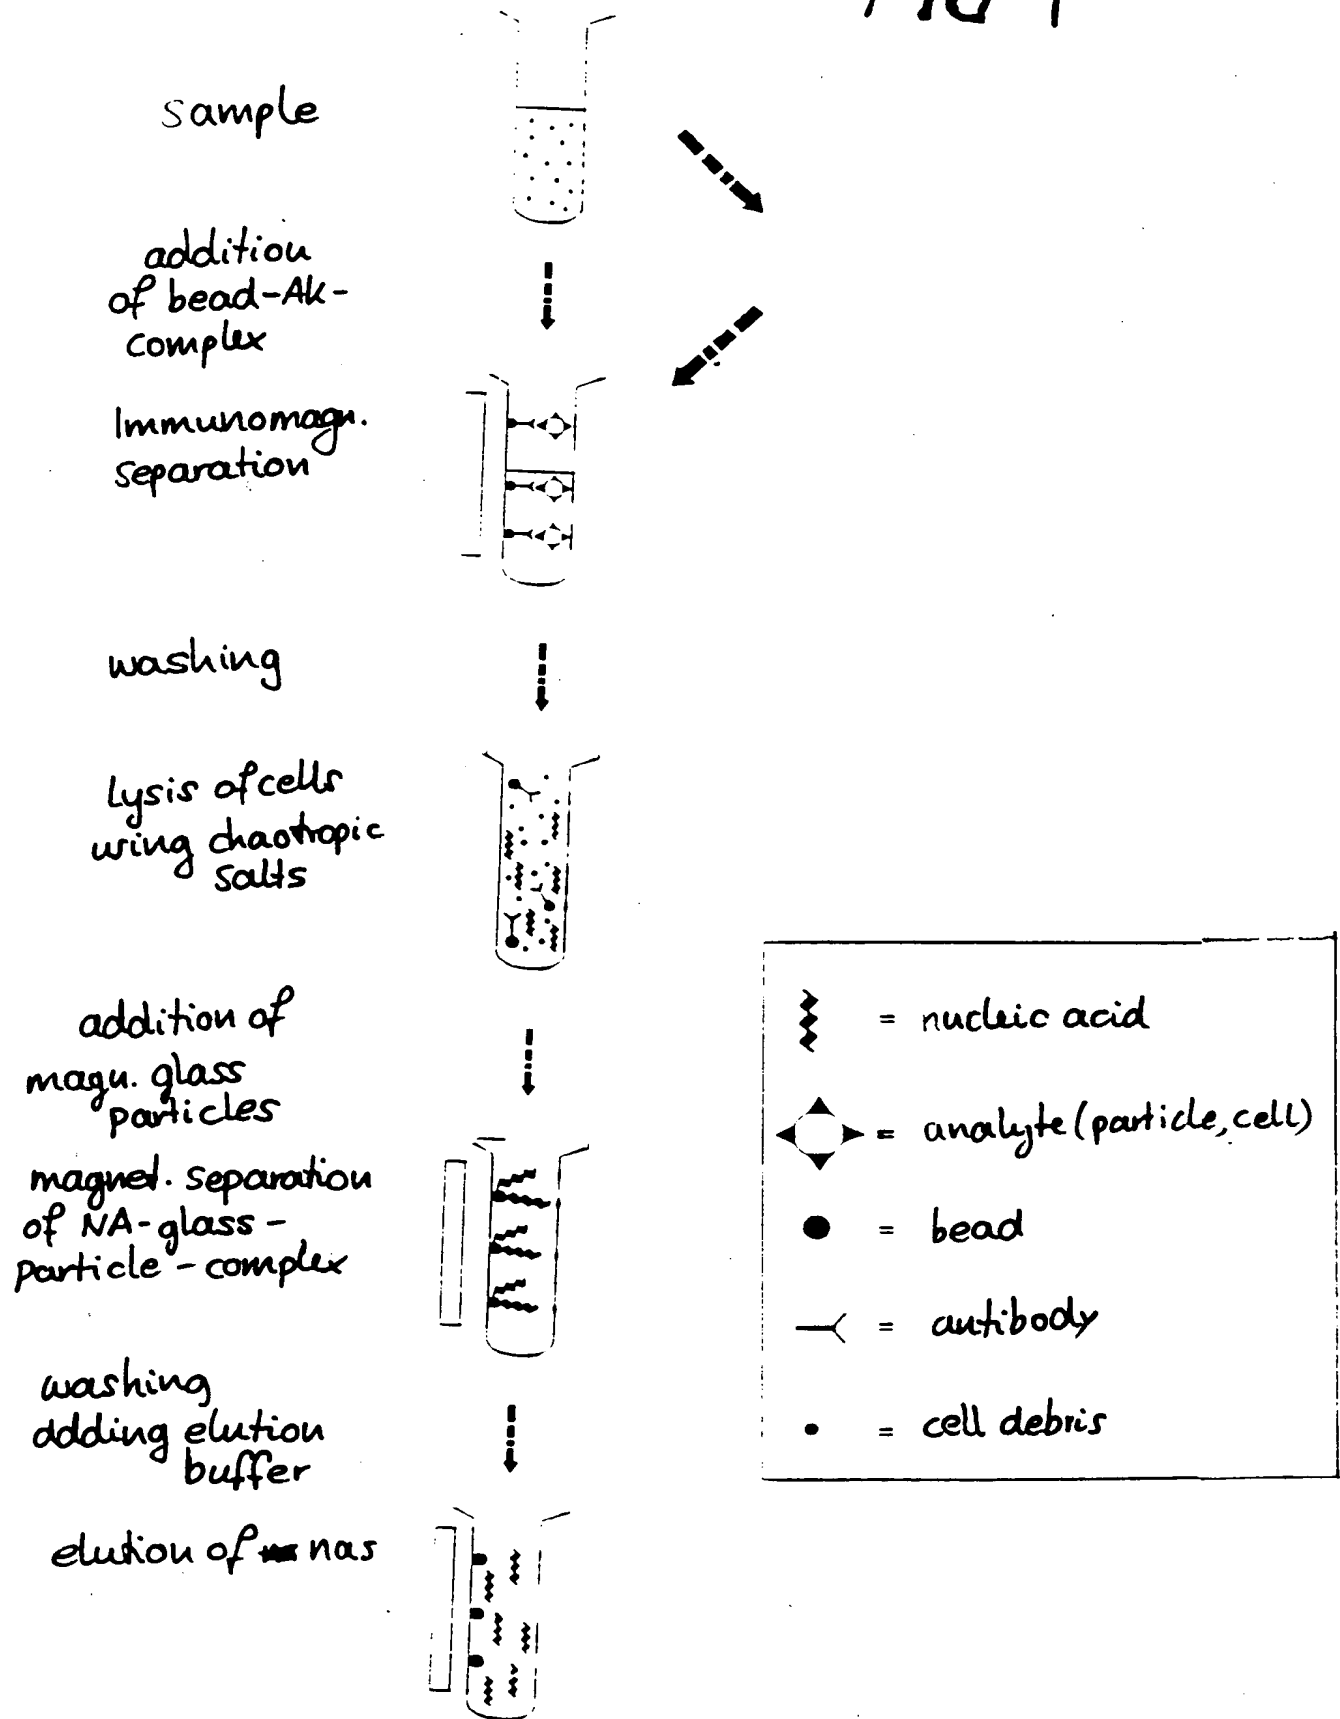 FIG 1
sample
addition
of bead-Ak-
complex
Immunomagn.
separation
washing
Lysis of cells
using chaotropic
salts
addition of
magn. glass
particles
magnet. separation
of NA-glass-
particle-complex
washing
ddding elution
buffer
elution of nas
= nucleic acid
= analyte (particle, cell)
= bead
= antibody
= cell debris